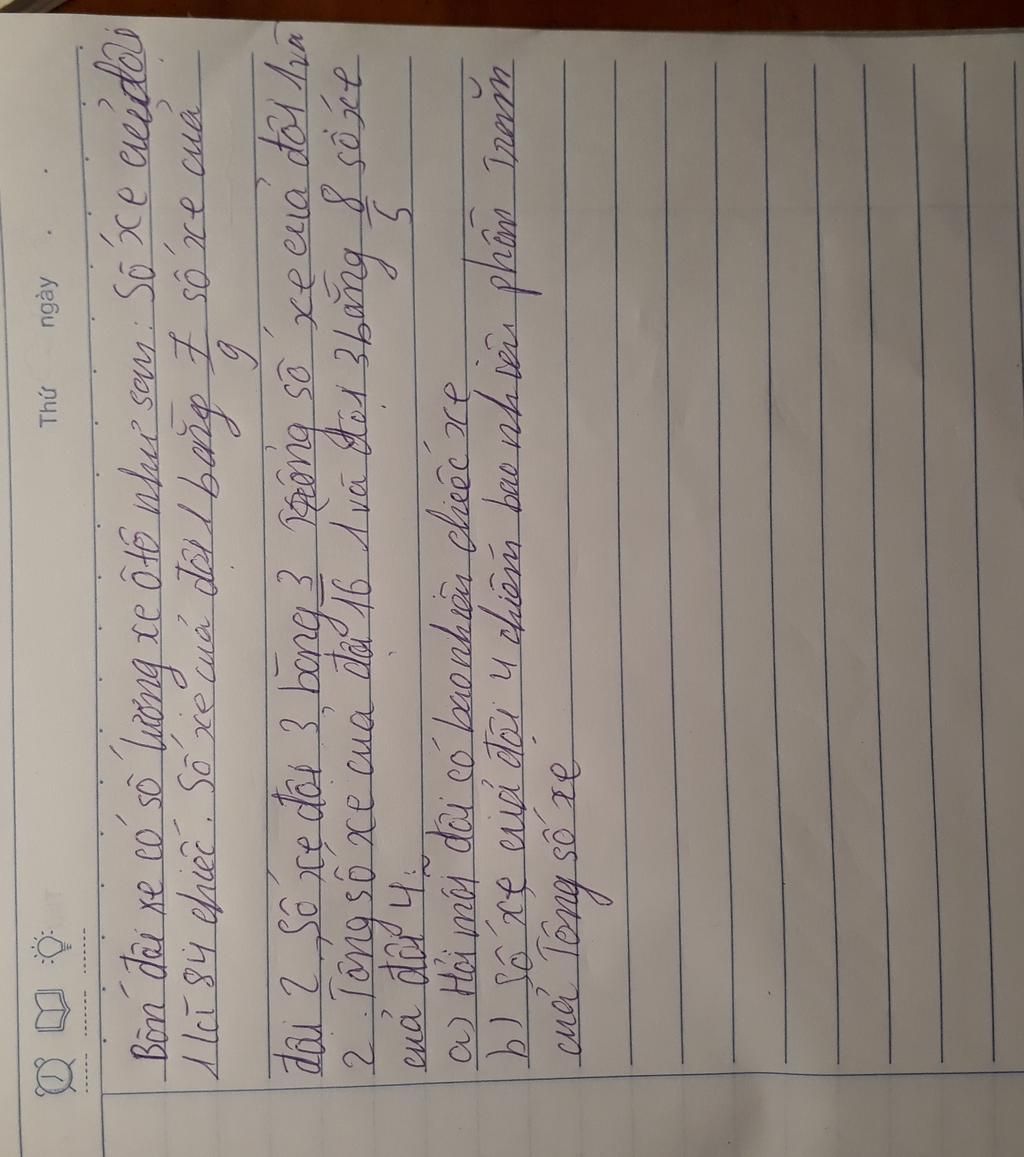 Thứ ngày
Bốn đội xe có số lượng xe ôtô như sau: Số xe của đội
1 là 84 chiếc. Số xe của đội 1 bằng 7/9 số xe của
đội 2, số xe đội 3 bằng 3/16 tổng số xe của đội 1 và
2. Tổng số xe của đội 1 và đội 3 bằng 8/5 số xe
của đội 4.
a) Hỏi mỗi đội có bao nhiêu chiếc xe
b) Số xe của đội 4 chiếm bao nhiêu phần trăm
của tổng số xe